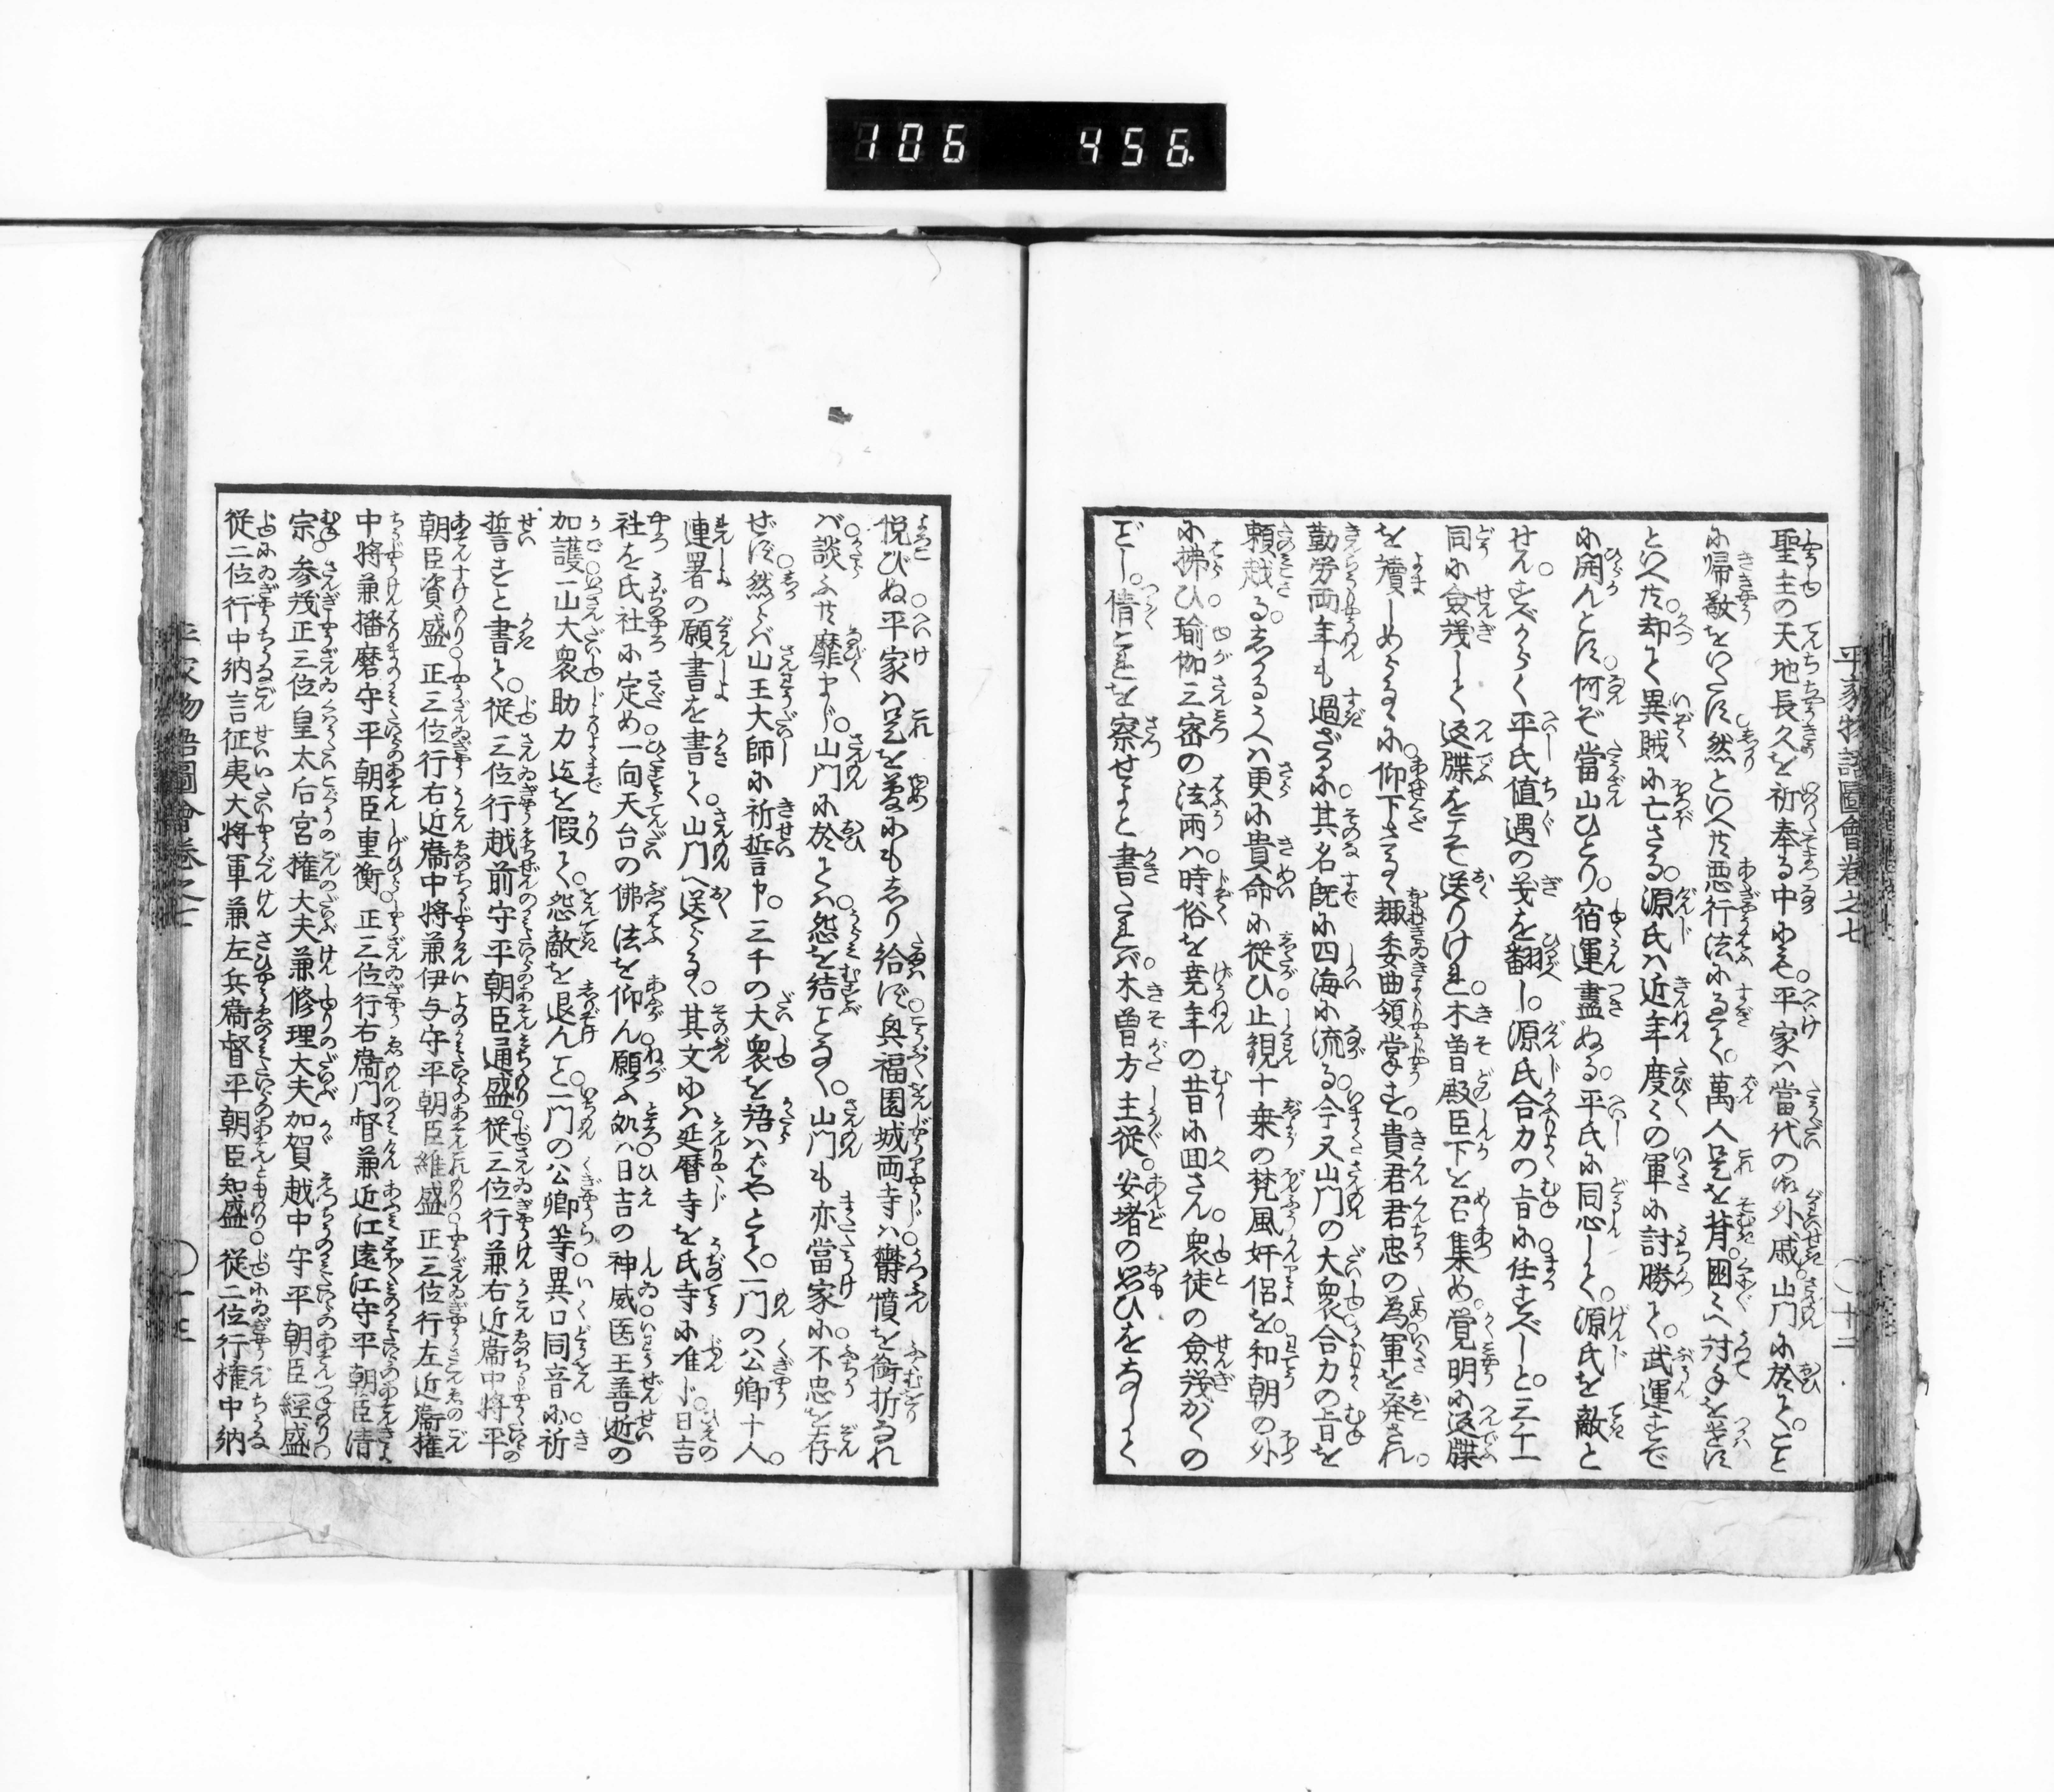 106 456.
平家物語圖會卷之七
十二
聖主の天地長久を祈奉る中にも。平家ハ當代の御外戚山門に於て。ことに
帰敬をいたす然といへ共悪行法に過て。萬人是を背。国々へ討手を遣す
といへ共。却て異賊に亡さる。源氏ハ近年度々の軍に討勝て。武運すで
に開んとす。何ぞ當山ひとり。宿運盡ぬる。平氏に同心して。源氏を敵と
せん。すべからく平氏値遇の義を翻し。源氏合力の旨に任すべしと。三千一
同に僉議して返牒をこそ送りけれ。木曽殿臣下を召集め。覚明に返牒
を讀しめらるゝに。仰下さるゝ趣委曲領掌す。貴君君忠の為軍を発され。
勤労両年も過ざるに。其名既に四海に流る。今又山門の大衆合力の旨を
頼越る。しかるうへハ更に貴命に従ひ。止観十乗の梵風奸侶を。和朝の外
に拂ひ。瑜伽三密の法雨ハ。時俗を尭年の昔に回さん。衆徒の僉議かくの
ごとし。倩これを察せよと書たれバ。木曽方主従。安堵の思ひをなして
悦びぬ。平家ハ是を夢にもしり給はず。興福園城両寺ハ。鬱憤を銜折なれ
バ。談ふ共靡まじ。山門に於てハ。怨を結ことなく。山門も亦當家に。不忠を存
ぜず。然らバ山王大師に祈誓申。三千の大衆を語ハばやとて。一門の公卿十人。
連署の願書を書て。山門へ送らる。其文にハ延暦寺を氏寺に准じ。日吉
社を氏社に定め。一向天台の佛法を仰ん。願ふ処ハ。日吉の神威医王善逝の
加護。一山大衆助力迄を假て。怨敵を退んと。一門の公卿等。異口同音に。祈
誓すと書て。従三位行越前守平朝臣通盛。従三位行兼右近衛中将平
朝臣資盛。正三位行右近衛中将兼伊与守平朝臣維盛。正三位行左近衛権
中将兼播磨守平朝臣重衡。正三位行右衛門督兼近江遠江守平朝臣清
宗。参議正三位皇太后宮権大夫兼修理大夫加賀越中守平朝臣經盛。
従二位行中納言征夷大将軍兼左兵衛督平朝臣知盛。従二位行権中納
平家物語圖會卷之七
十三